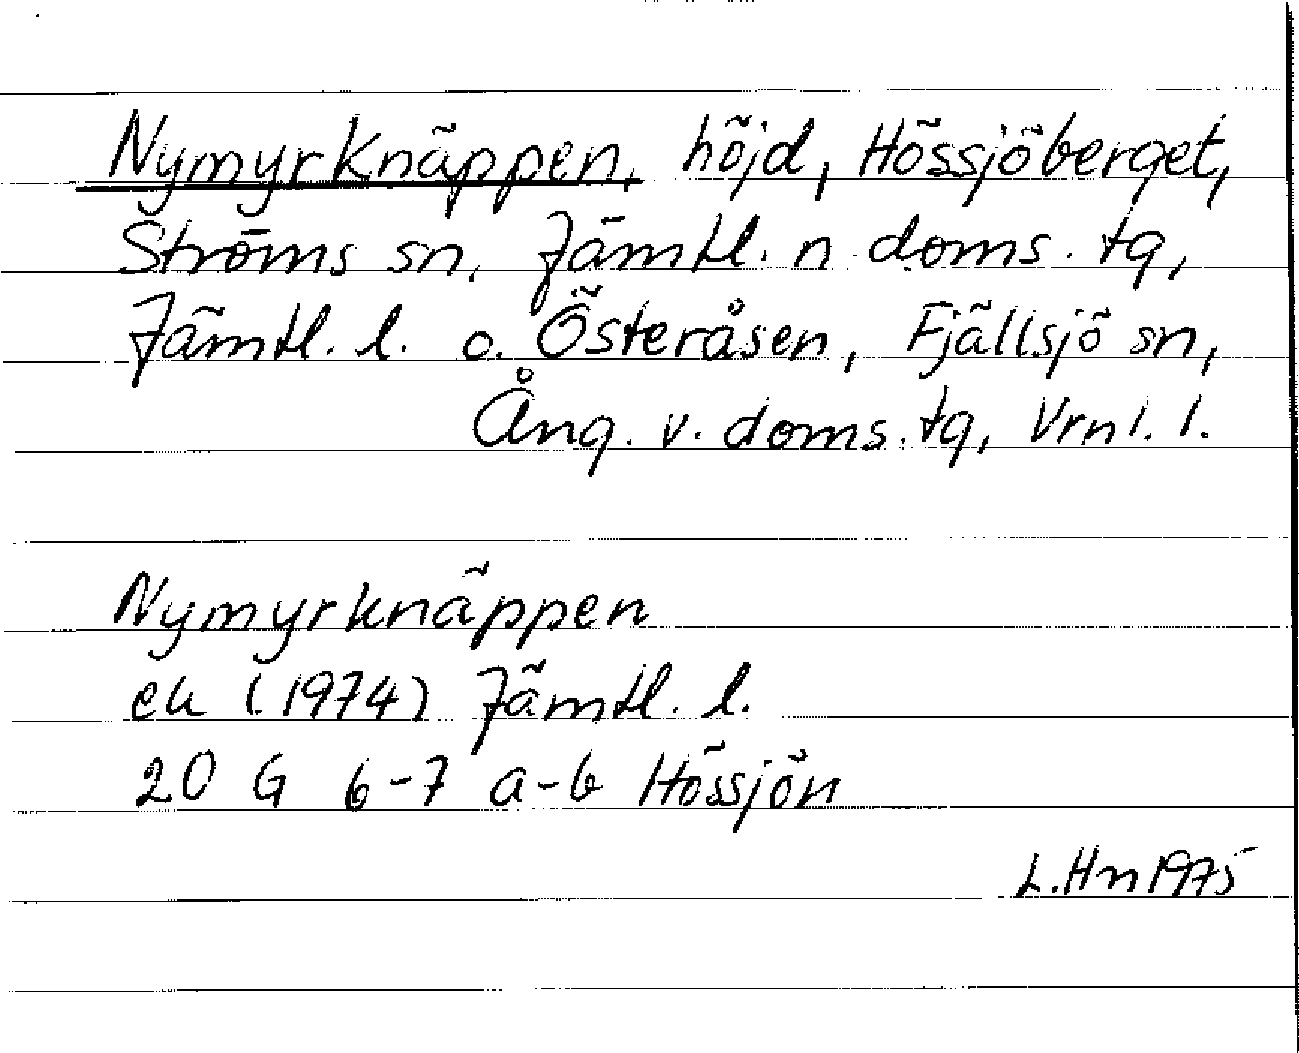 Nymyrknäppen, höjd, Hössjöberget,
Ströms sn, Jämtl. n. doms. tg,
Jämtl. l. o. Österåsen, Fjällsjö sn,
Ång. v. doms. tg, Vrnl. l.
Nymyrknäppen
ek (1974) Jämtl. l.
20 G 6-7 a-b Hössjön
L.Hn 1975